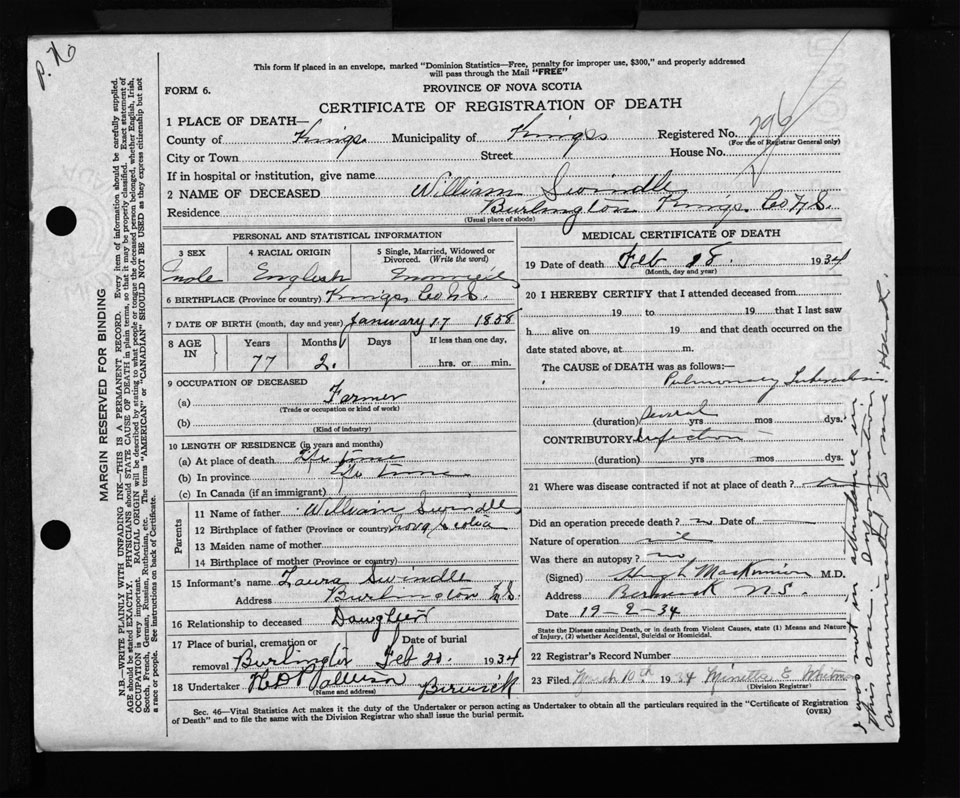 P. No
This form if placed in an envelope, marked "Dominion Statistics—Free, penalty for improper use, $300," and properly addressed
will pass through the Mail "FREE"
FORM 6.
PROVINCE OF NOVA SCOTIA
CERTIFICATE OF REGISTRATION OF DEATH
1 PLACE OF DEATH—
County of Kings Municipality of Kings Registered No. 296
(For use of Registrar General only)
City or Town Street House No.
If in hospital or institution, give name
2 NAME OF DECEASED William Swindle
Residence Burlington Kings Co N.S.
(Usual place of abode)
PERSONAL AND STATISTICAL INFORMATION
3 SEX 4 RACIAL ORIGIN 5 Single, Married, Widowed or
Divorced. (Write the word)
Male English Married
6 BIRTHPLACE (Province or country) Kings Co N.S.
7 DATE OF BIRTH (month, day and year) January 17 1858
8 AGE IN Years Months Days If less than one day,
77 2. hrs. or min.
9 OCCUPATION OF DECEASED
(a) Farmer
(Trade or occupation or kind of work)
(b)
(Kind of industry)
10 LENGTH OF RESIDENCE (in years and months)
(a) At place of death Life time
(b) In province Life time
(c) In Canada (if an immigrant)
Parents
11 Name of father William Swindle
12 Birthplace of father (Province or country) Nova Scotia
13 Maiden name of mother
14 Birthplace of mother (Province or country)
15 Informant's name Laura Swindle
Address Burlington N.S.
16 Relationship to deceased Daughter
17 Place of burial, cremation or Date of burial
removal Burlington Feb 20. 1934
18 Undertaker Berwick
(Name and address)
MEDICAL CERTIFICATE OF DEATH
19 Date of death Feb 18. 1934
(Month, day and year)
20 I HEREBY CERTIFY that I attended deceased from
19 to 19 that I last saw
h alive on 19 and that death occurred on
date stated above, at m.
The CAUSE of DEATH was as follows:—
Pulmonary Tuberculosis
(duration) several yrs mos dys.
CONTRIBUTORY Infection
(duration) yrs mos dys.
21 Where was disease contracted if not at place of death?
Did an operation precede death? no Date of
Nature of operation nil
Was there an autopsy? no
(Signed) Hugh MacKinnon M.D.
Address Berwick N.S.
Date 19-2-34
State the Disease causing Death, or in death from Violent Causes, state (1) Means and Nature
of Injury, (2) whether Accidental, Suicidal or Homicidal.
22 Registrar's Record Number
23 Filed March 10th 1934 Minetta E
(Division Registrar)
Sec. 46—Vital Statistics Act makes it the duty of the Undertaker or person acting as Undertaker to obtain all the particulars required in the "Certificate of Registration
of Death" and to file the same with the Division Registrar who shall issue the burial permit.
(OVER)
MARGIN RESERVED FOR BINDING
N.B.—WRITE PLAINLY WITH UNFADING INK—THIS IS A PERMANENT RECORD. Every item of information should be carefully supplied.
AGE should be stated EXACTLY. PHYSICIANS should STATE CAUSE OF DEATH in plain terms, so that it may be properly classified. Exact statement of
OCCUPATION is very important. RACIAL ORIGIN will be described by stating to what people or tongue the deceased person belonged, whether English, Irish,
Scotch, French, German, Russian, Ruthenian, etc. The terms "AMERICAN" or "CANADIAN" SHOULD NOT BE USED as they express citizenship but not
a race or people. See instructions on back of Certificate.
I was not in attendance in
this case. Information
communicated to me